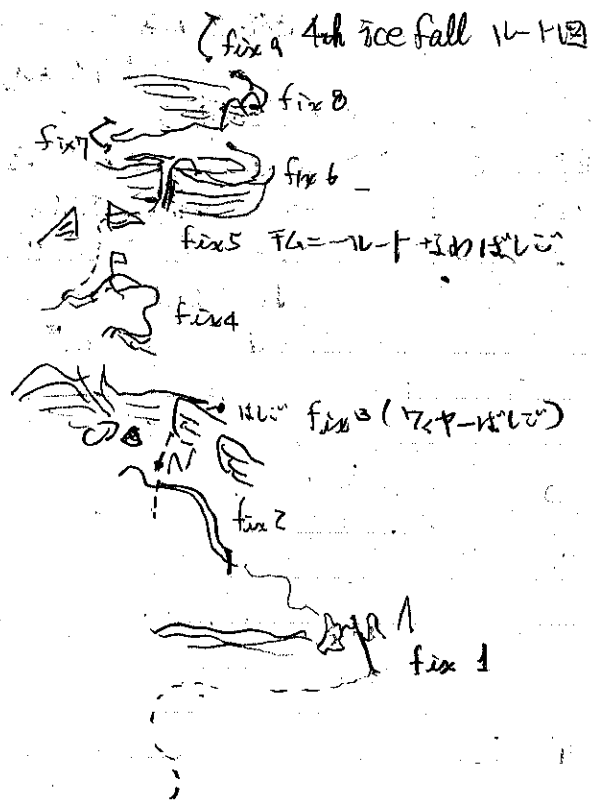 fix 9 4th ice fall ルート図
fix 8
fix 7
fix 6
fix 5 チムニールート なわばしご
fix 4
はしご fix 3 (ワイヤーばしご)
fix 2
fix 1